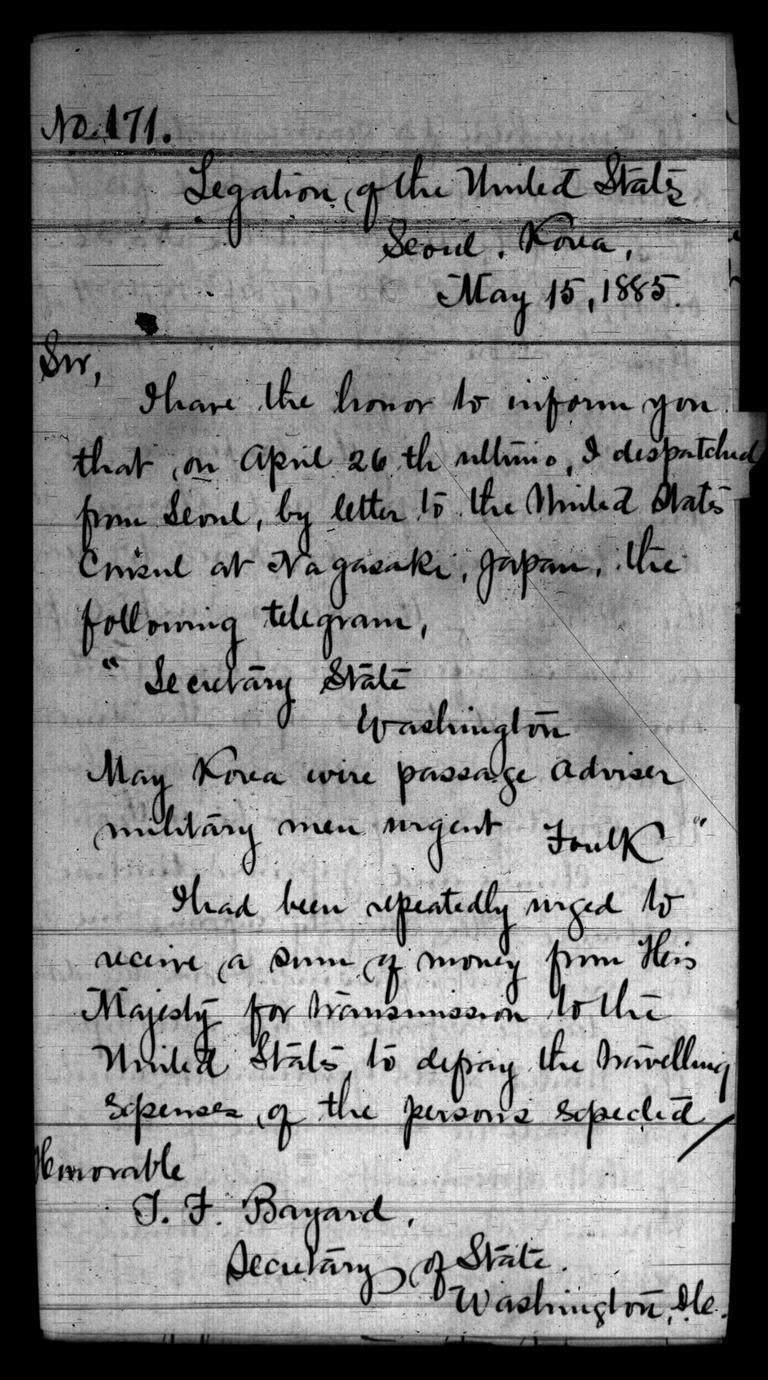 No. 171.
Legation of the United States
Seoul, Korea,
May 15, 1885.
Sir,
I have the honor to inform you
that on April 26th ultimo, I despatched
from Seoul, by letter to the United States
Consul at Nagasaki, Japan, the
following telegram,
" Secretary State
Washington
May Korea wire passage adviser
military men urgent Foulk "
I had been repeatedly urged to
receive a sum of money from His
Majesty for transmission to the
United States to defray the travelling
expenses of the persons expected
Honorable
T. F. Bayard,
Secretary of State.
Washington,